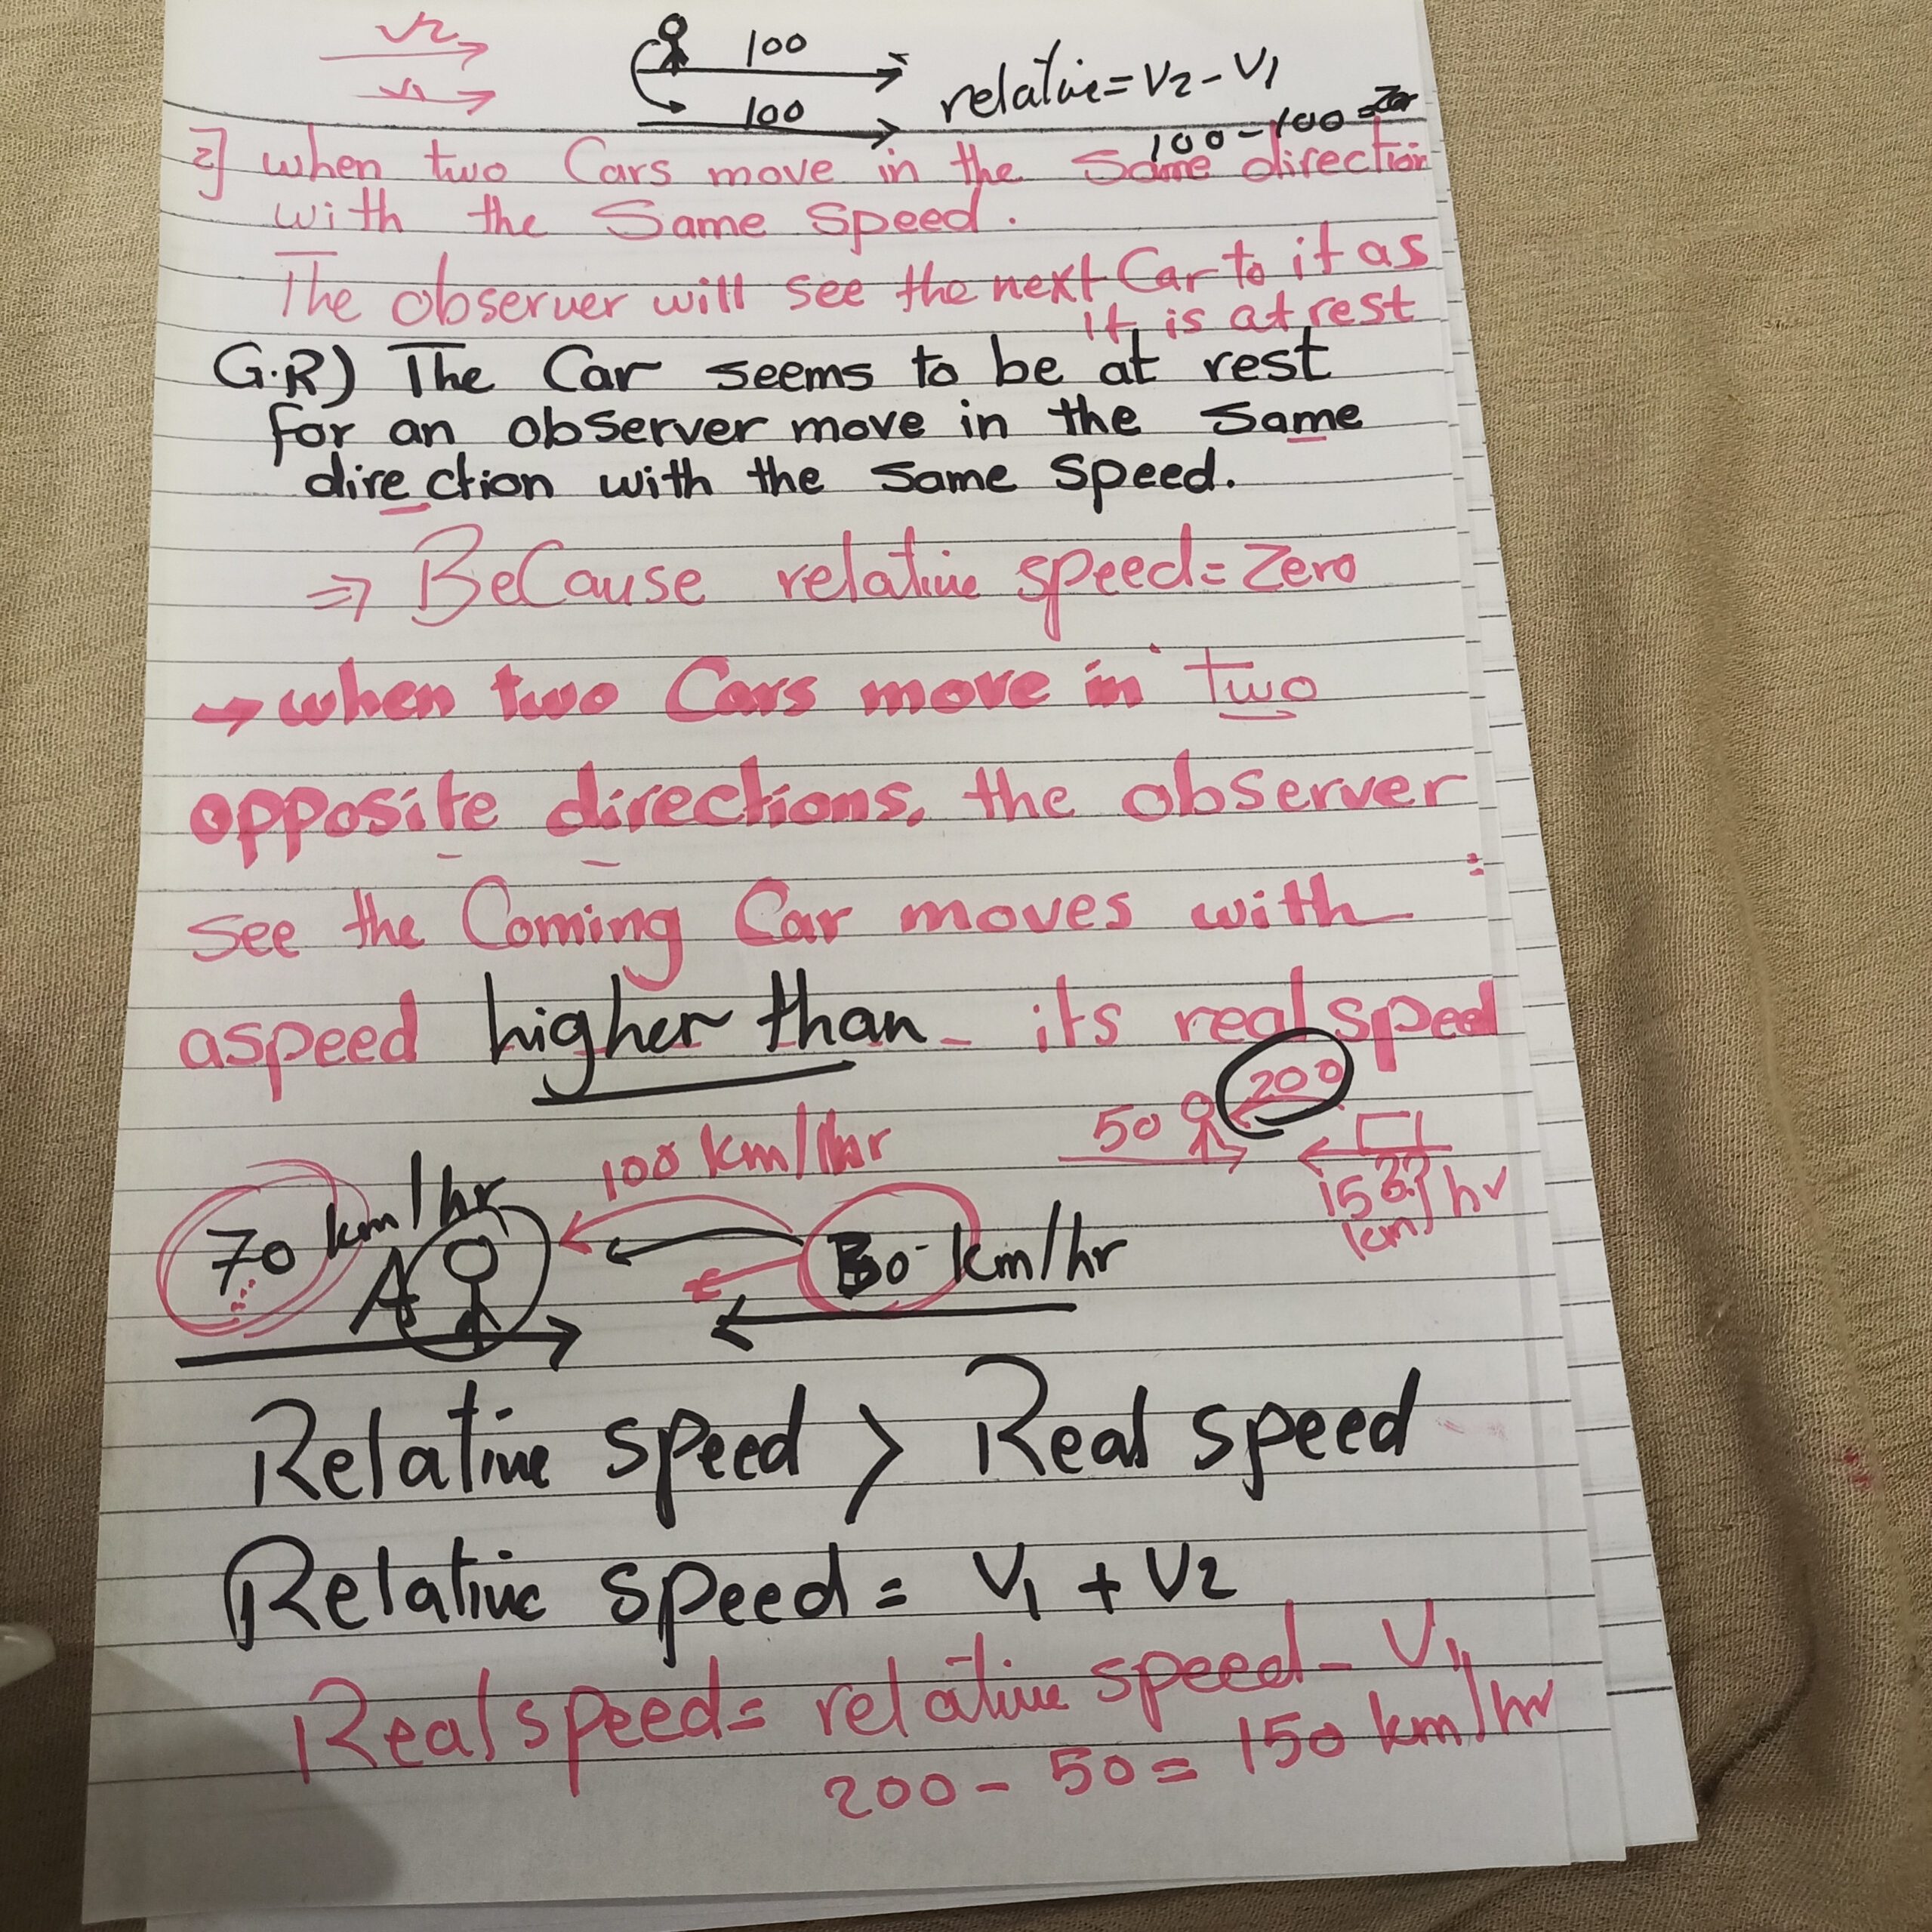 V2
V1
100
100
relative = V2 - V1
100 - 100 = Zero
2] when two Cars move in the Same direction
with the Same Speed.
The observer will see the next Car to it as
it is at rest
G.R) The Car seems to be at rest
for an observer move in the same
direction with the same speed.
⇒ BeCause relative speed = Zero
→ when two Cars move in two
opposite directions, the observer
see the Coming Car moves with :
aspeed higher than its real speed
200
50
150 ??
km/hr
100 km/hr
70 km/hr
A
30 km/hr
Relative speed > Real speed
Relative speed = V1 + V2
Real speed = relative speed - V1
200 - 50 = 150 km/hr